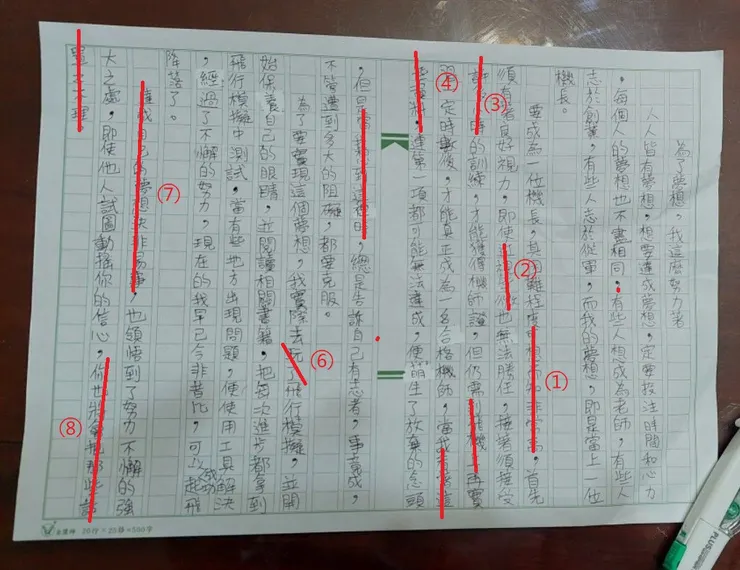 為了夢想，我這麼努力著
人人皆有夢想，想要達成夢想，定要投注時間和心力
，每個人的夢想也不盡相同，有些人想成為老師，有些人
志於創業，有些人志於從軍，而我的夢想，即是當上一位
機長。
要成為一位機長，其難程度想而知非常高，首先
①
須有著良好視力，即使也無法勝任，接著須接受
②
時的訓練，才能獲得機師證，但仍需飛機上再實
③
習定時數後，才能真正成為一名合格機師，當我看著這
④
，連第一項都可能無法達成，便萌生了放棄的念頭
，但，總是告訴自己有志者，事竟成，
不管遭到多大的阻礙，都要克服。
為了要實現這個夢想，我實際去玩了飛行模擬，並開
⑥
始保養自己的眼睛，並閱讀相關書籍，把每次進步都拿到
飛行模擬中測試，當有些地方出現問題，便使用工具解決
，經過了不懈的努力，現在的我早已今非昔比，可以成功起飛
降落了。
⑦
達成自己的夢想決非易事，也領悟到了努力不懈的強
大之處，即使他人試圖動搖你的信心，你也把那些話
⑧
置之不理
20行×25格=500字
PLUS